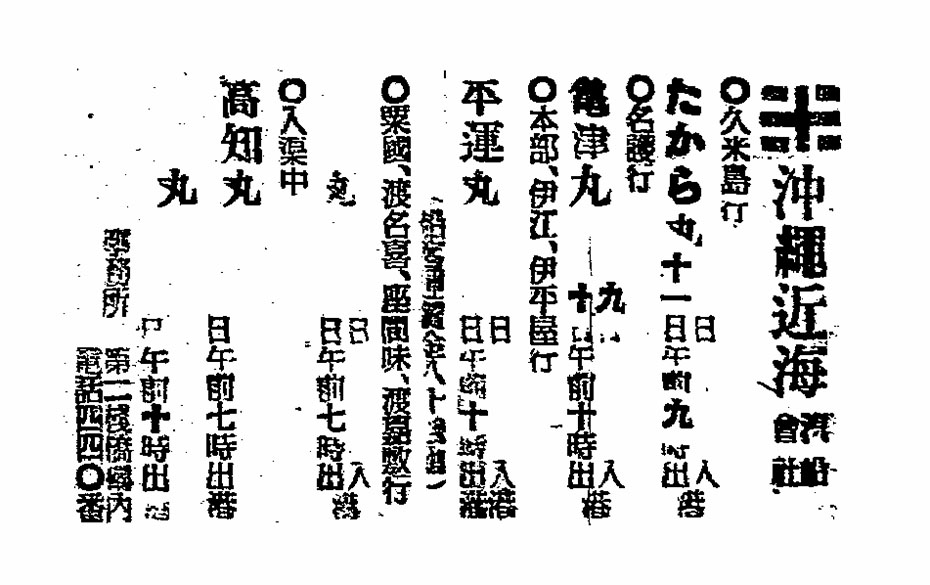 沖縄近海汽船會社
○久米島行
たから丸 十一日午前九時出港
日入港
○名護行
亀津丸 十日午前十時出港
九日入港
○本部、伊江、伊平屋行
平運丸 日午前十時出港
日入港
○粟國、渡名喜、座間味、渡嘉敷行
丸 日午前七時出港
日入港
○入渠中
高知丸 日午前七時出港
丸 日午前十時出港
事務所 第二棧橋構内
電話四四〇番